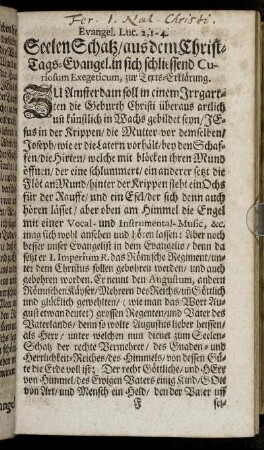 Fer. I. Nat. Christi.
Evangel. Luc. 2, 1-4.
Seelen Schatz / aus dem Christ-
Tags-Evangel. in sich schliessend Cu-
riosum Exegeticum, zur Texts-Erklärung.
ZU Amsterdam soll in einem Irrgar-
ten die Geburth Christi überaus artlich
uñ künstlich in Wachs gebildet seyn / JE-
sus in der Krippen / die Mutter vor demselben /
Joseph / wie er die Latern vorhält / bey den Schaf-
fen / die Hirten / welche mit blöcken ihren Mund
öffnen / der eine schlummert / ein anderer setzt die
Flöt an Mund / hinter der Krippen steht ein Ochs
für der Rauffe / und ein Esel / der sich denn auch
hören lässet / aber oben am Himmel die Engel
mit einer Vocal- und Instrumental-Music, &c.
mag sich wohl ansehen und hören lassen: Aber noch
besser unser Evangelist in dem Evangelio / denn da
setzt er 1. Imperium R. das Römische Regiment / un-
ter dem Christus sollen gebohren werden / und auch
gebohren worden. Er nennt den Augustum, andern
Römischen Käyser / Mehrern des Reichs / uñ Götlich
und glücklich geweheten / (wie man das Wort Au-
gust etwan deutet) grossen Regenten / und Vater des
Vaterlandes / denn so wolte Augustus lieber heissen /
als Herr / unter welchen nun dienet zum Seelen-
Schatz der rechte Vermehrer / des Gnaden- und
Herrlichkeit-Reiches / des Himmels / von dessen Gü-
te die Erde voll ist: Der recht Göttliche / und HErr
von Himmel / des Ewigen Vaters einig Kind / GOtt
von Art / und Mensch ein Held / den der Vater uff
F
set-